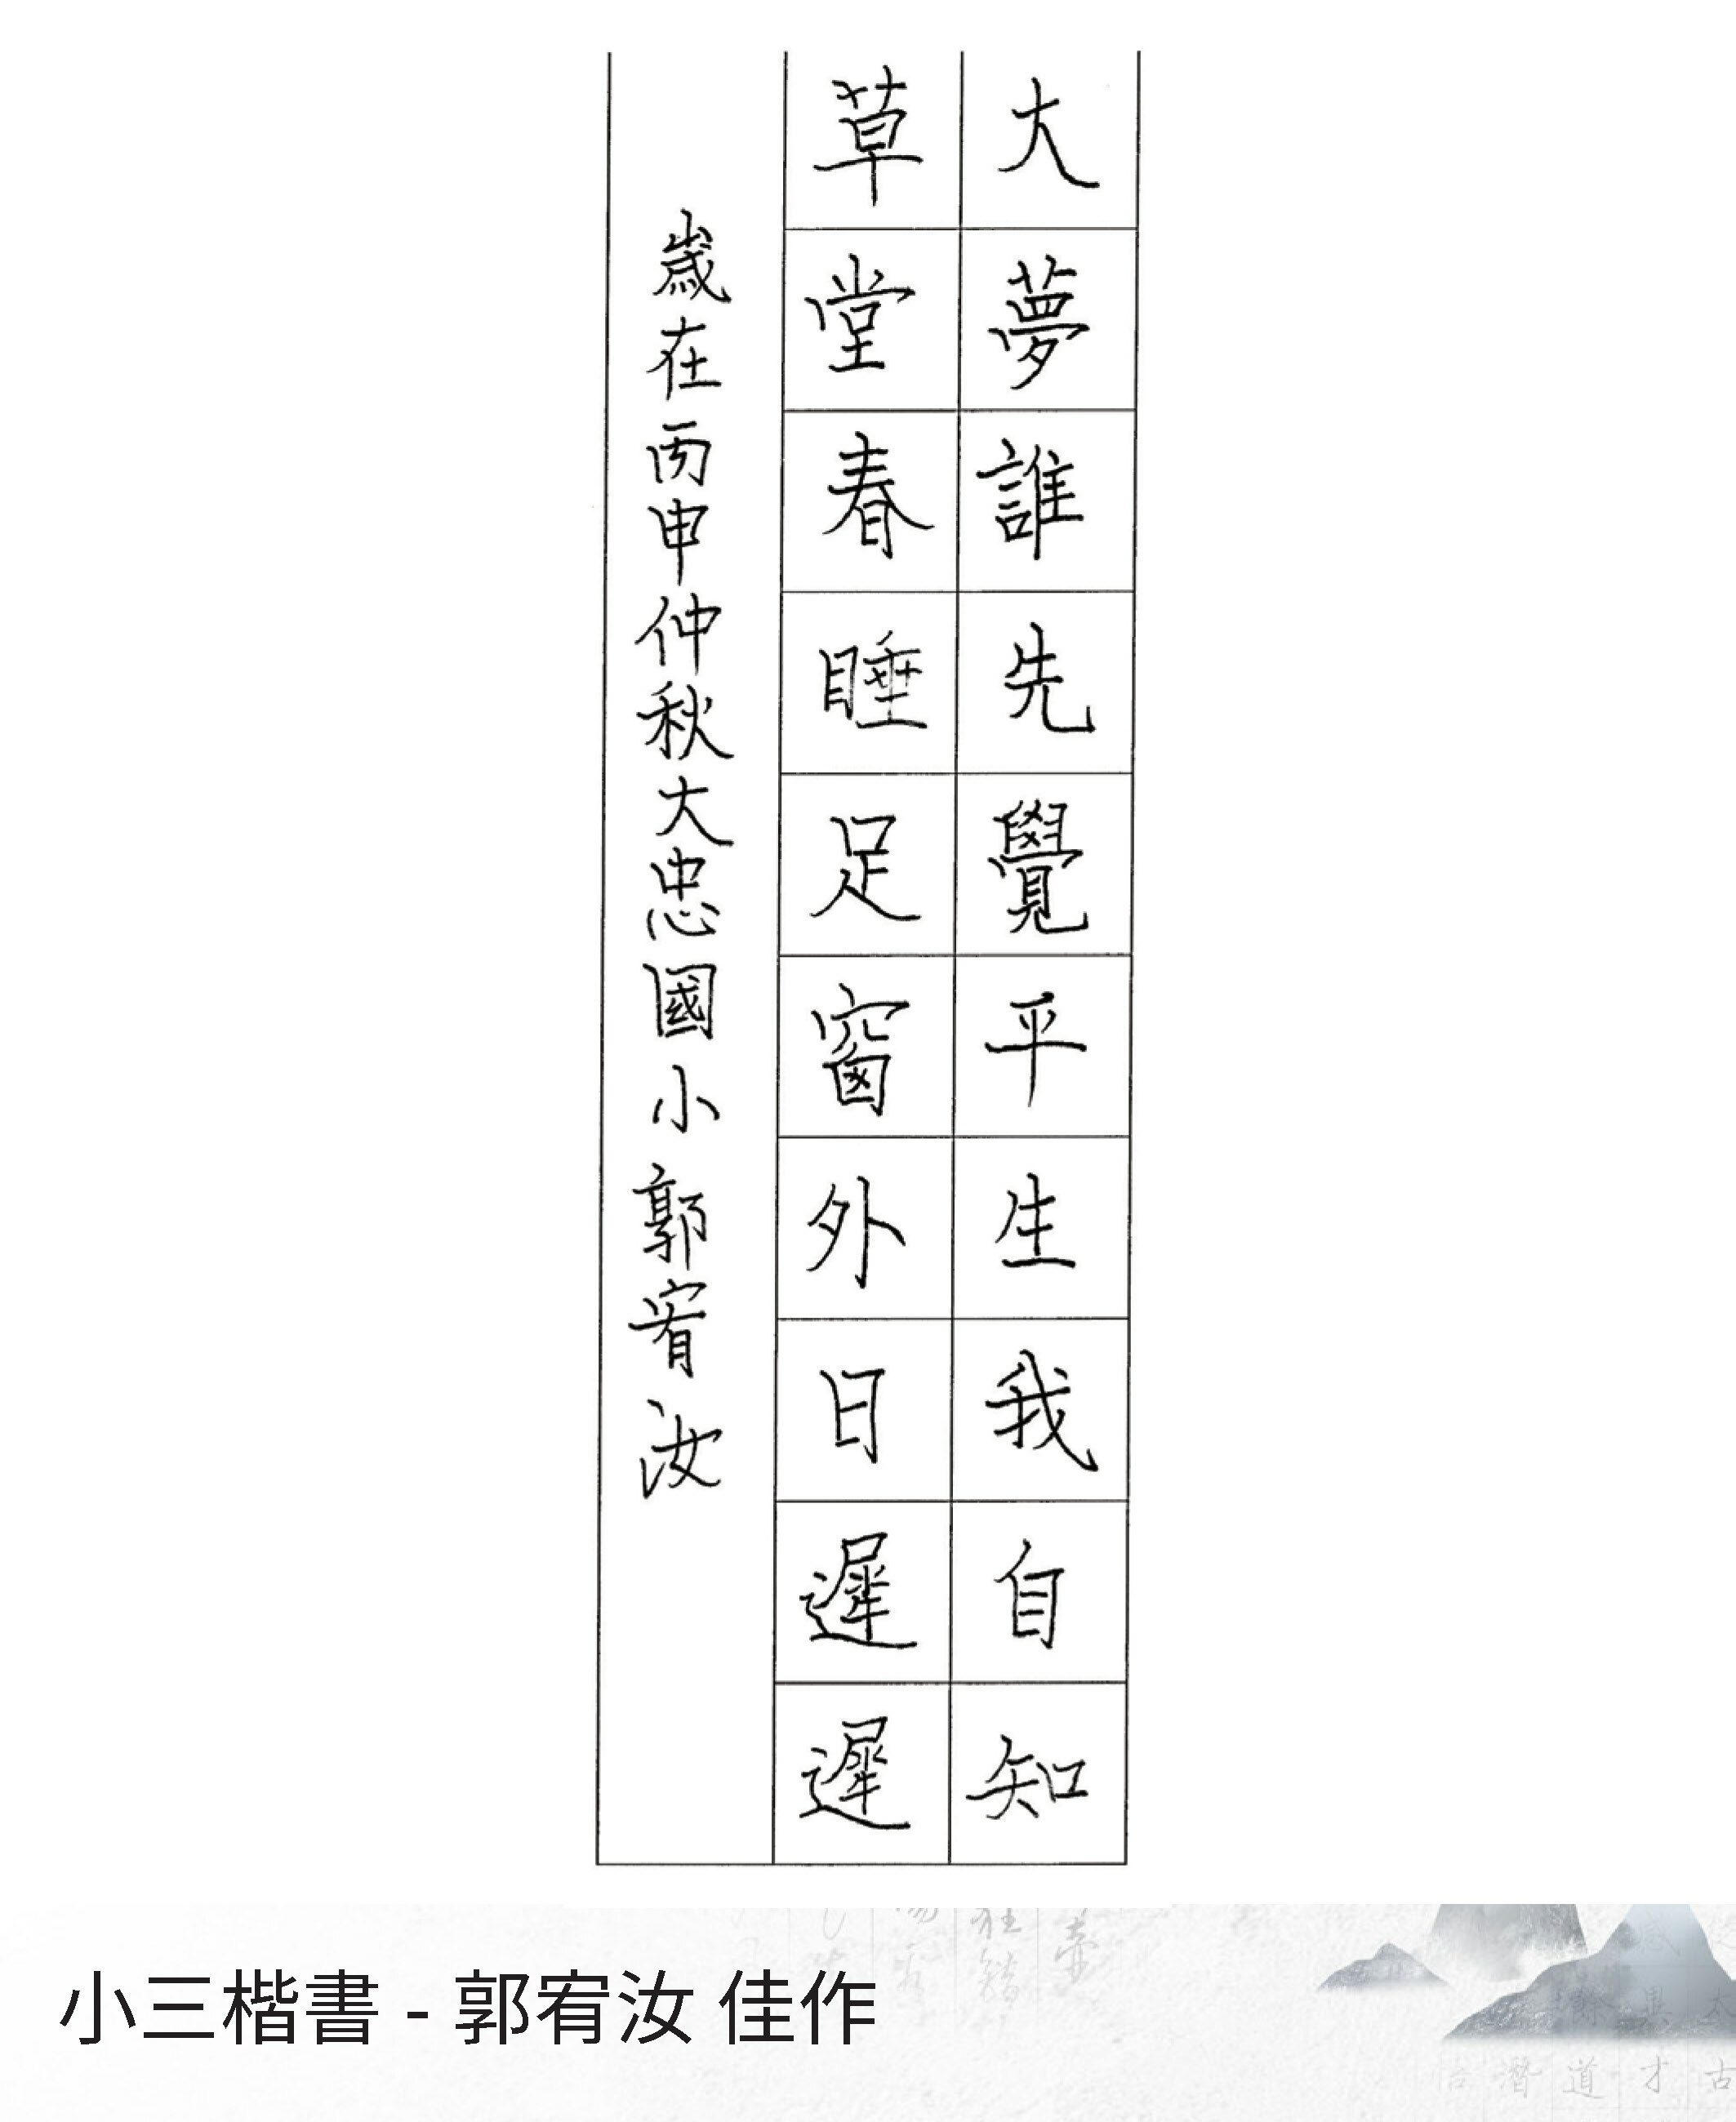 大夢誰先覺平生我自知
草堂春睡足窗外日遲遲
歲在丙申仲秋大忠國小郭宥汝
小三楷書 - 郭宥汝 佳作